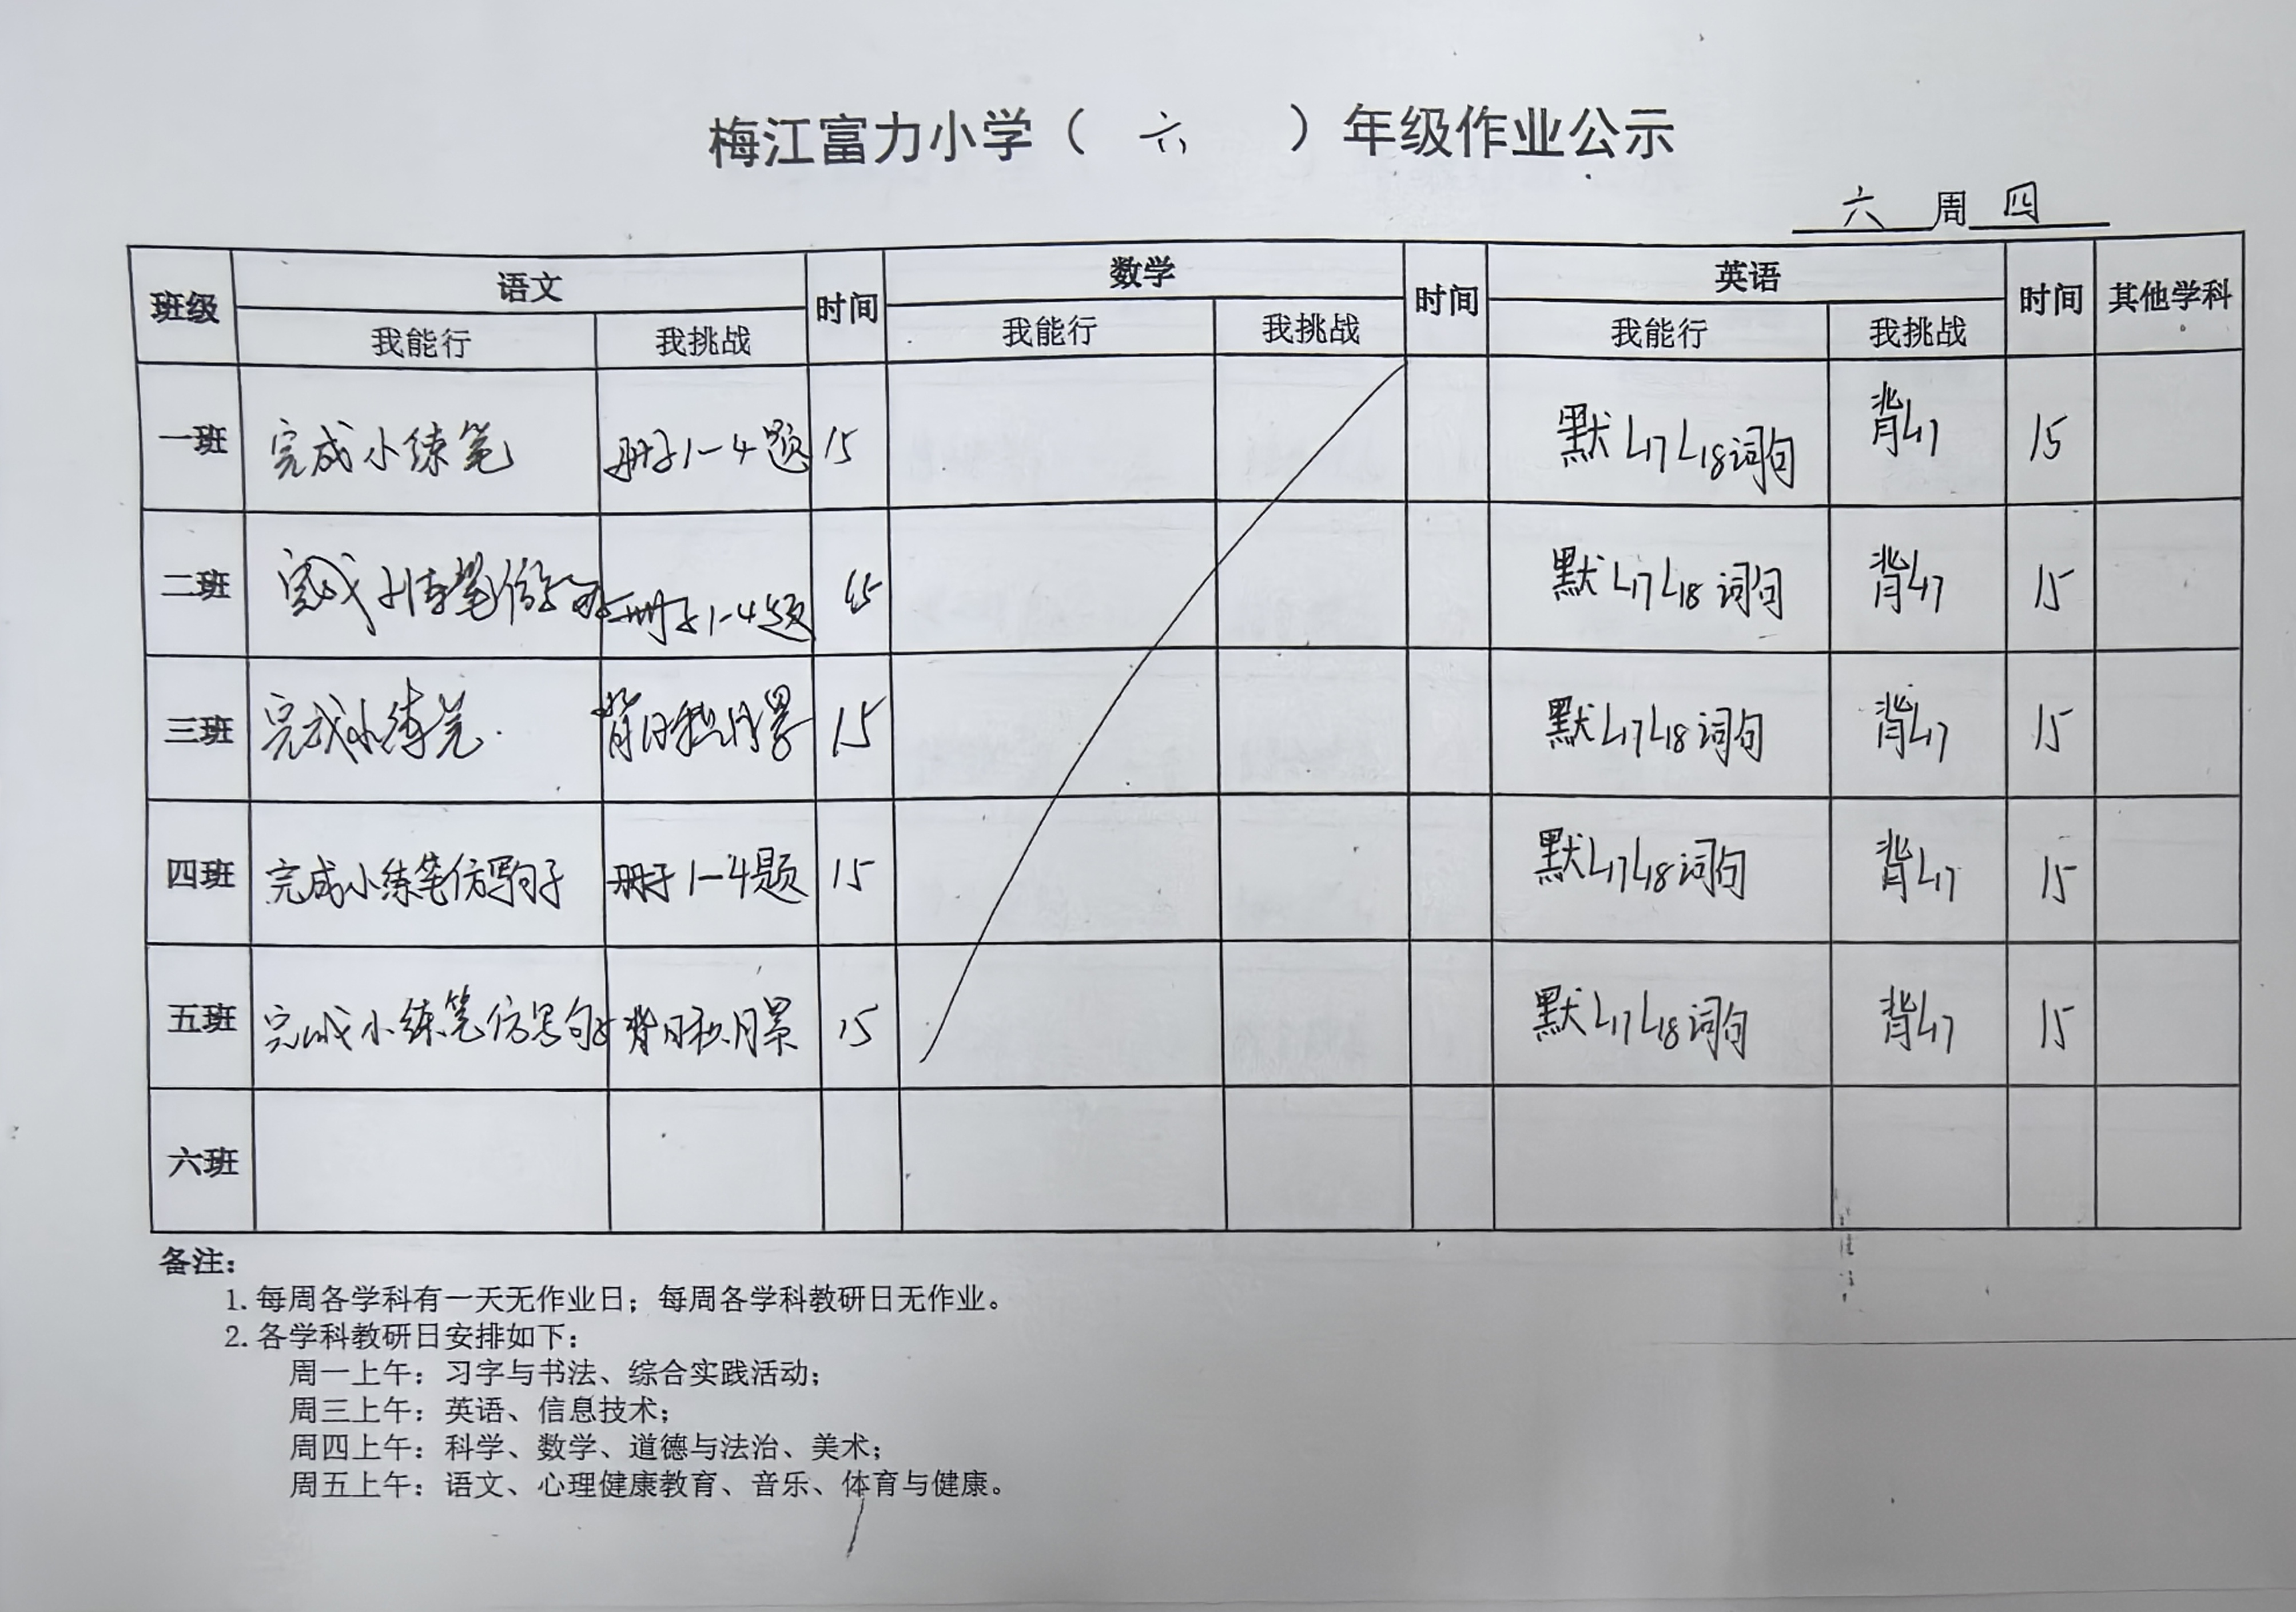 梅江富力小学（ 六 ）年级作业公示
六 周 四
班级 语文 时间 数学 时间 英语 时间 其他学科
我能行 我挑战 我能行 我挑战 我能行 我挑战
一班 完成小练笔 册子1-4题 15 默L17L18词句 背L17 15
二班 完成小练笔仿写句子 册子1-4题 15 默L17L18词句 背L17 15
三班 完成小练笔. 背日积月累 15 默L17L18词句 背L17 15
四班 完成小练笔仿写句子 册子1-4题 15 默L17L18词句 背L17 15
五班 完成小练笔仿写句子 背日积月累 15 默L17L18词句 背L17 15
六班
备注：
1. 每周各学科有一天无作业日；每周各学科教研日无作业。
2. 各学科教研日安排如下：
周一上午：习字与书法、综合实践活动；
周三上午：英语、信息技术；
周四上午：科学、数学、道德与法治、美术；
周五上午：语文、心理健康教育、音乐、体育与健康。